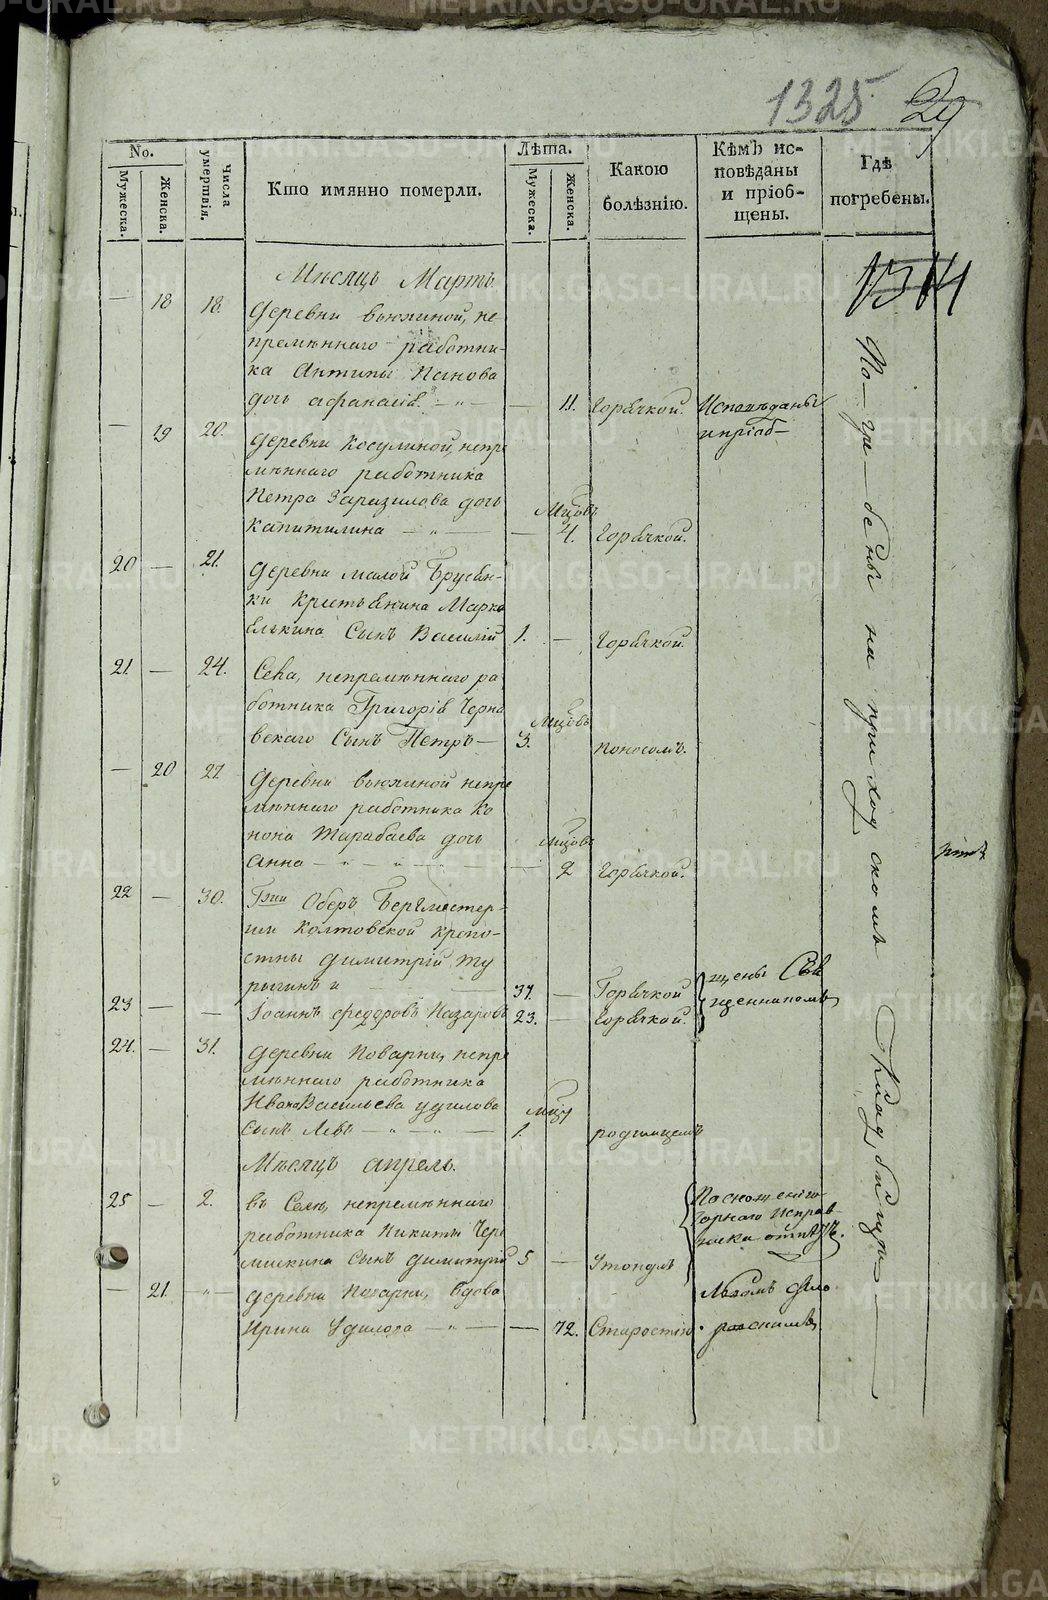 1325 29
No.
Мужеска.
Женска.
Числа умертвія.
Кто имянно померли.
Лѣта.
Мужеска.
Женска.
Какою болѣзнію.
Кѣмъ исповѣданы и пріобщены.
Гдѣ погребены.
1314
Мѣсяцъ Мартъ.
— 18 18. Деревни вьюхиной, не-
премѣннаго работни-
ка Антипы Панова
дочь Афанасія — — 11. Горячкой. Исповѣданы
и пріоб-
— 19 20. Деревни Косулиной, непре
мѣннаго работника
Петра Заразилова дочь Мцовъ
Капитилина — — 4. Горячкой.
20 — 21. Деревни малой Брусян-
ки крестьянина Марка
Елькина Сынъ Василій 1. — Горячкой.
21 — 24. Села, непремѣннаго ра
ботника Григорія Черно Мцовъ
вскаго Сынъ Петръ — 3. поносомъ.
— 20 27 Деревни вьюхиной непре
мѣннаго работника Ко
нона Тарабаева дочь Мцовъ
Анна — — 2 Горячкой.
22 — 30. Гжи Оберъ Бергмейстер-
ши Колтовской крепо-
стны Димитрій Ту щены Свя
рыгинъ и 37. — Горячкой щенникомъ
23 — — Іоаннъ Федоровъ Назаровъ 23. — Горячкой.
24. — 31. Деревни Поварни, непре
мѣннаго работника
Ивана Васильева Удилова Мцу
сынъ Левъ — — 1. родимцемъ
Мѣсяцъ апрель.
25 — 2. въ Селѣ, непремѣннаго По сношенію
работника Никиты Чере горнаго исправ-
мискина Сынъ Димитрій 5 — Утонулъ ника отпѣтъ.
— 21. — Деревни Поварни, вдова
Ирина Удилова — — 72. Старостію.
По-гре-бены на приходскомъ Кладбищѣ